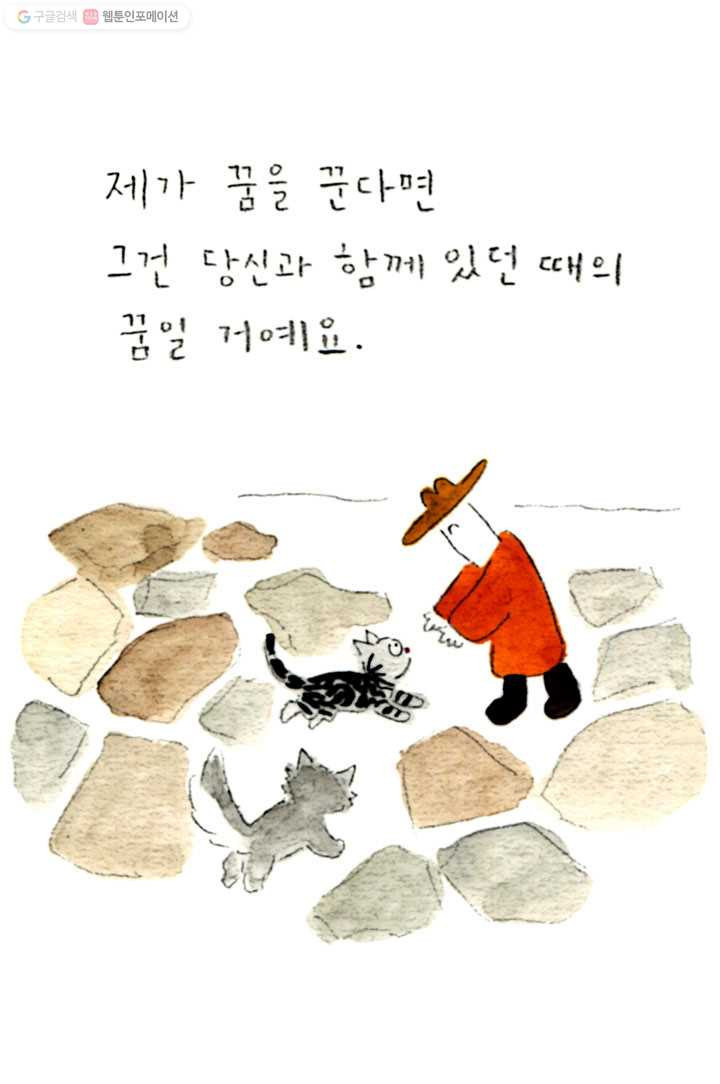 구글검색 웹툰인포메이션
제가 꿈을 꾼다면
그건 당신과 함께 있던 때의
꿈일 거예요.